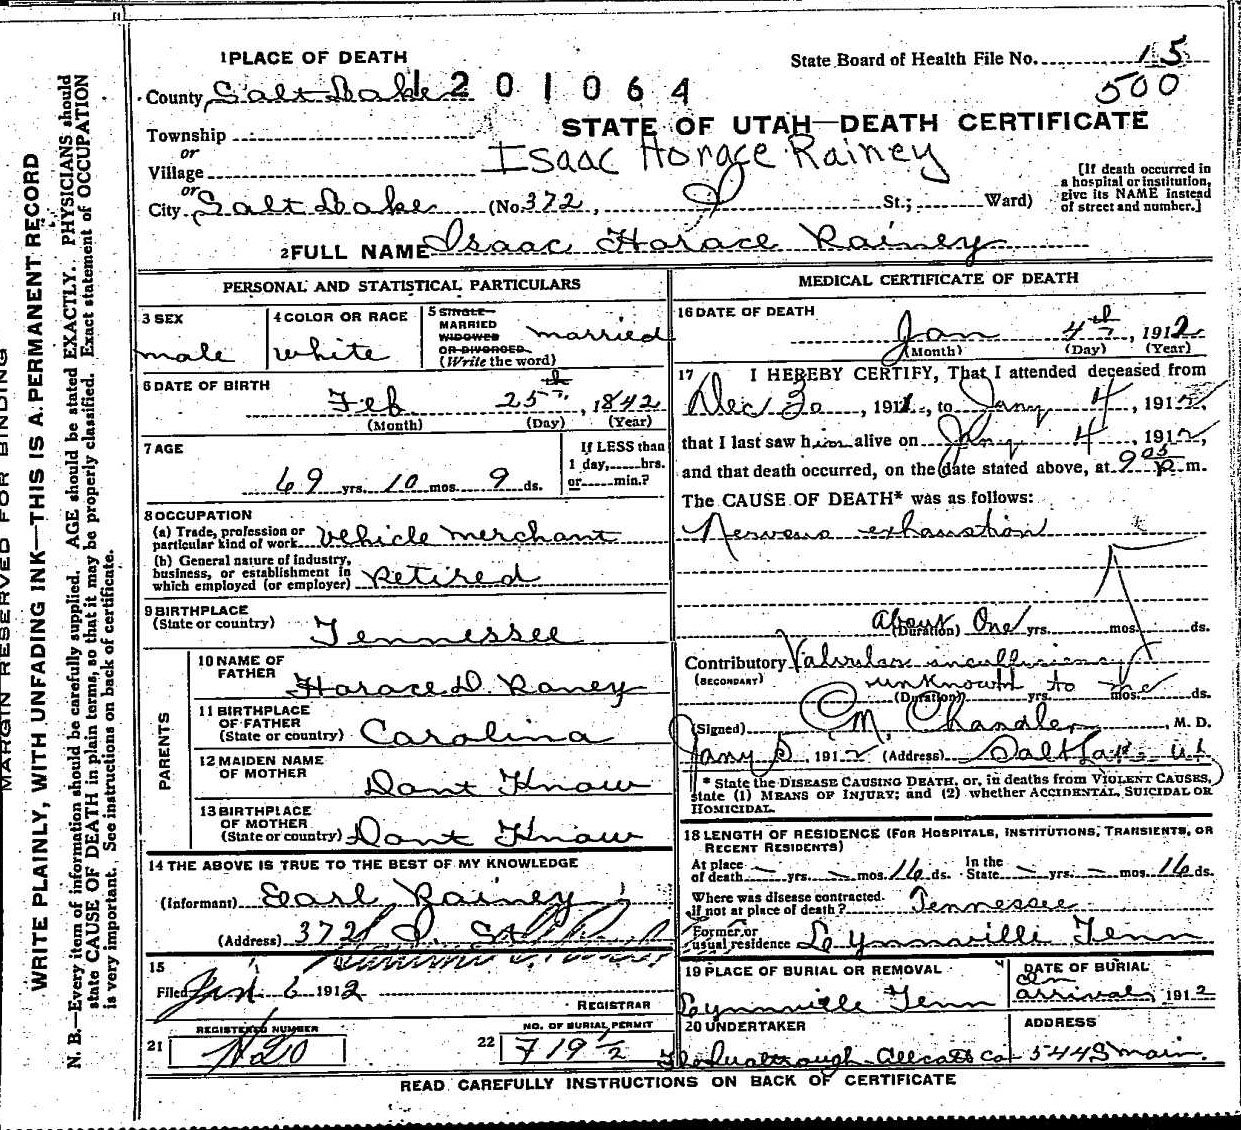 1 PLACE OF DEATH
State Board of Health File No. 15
500
County Salt Lake 1201064
STATE OF UTAH—DEATH CERTIFICATE
Township
or
Village
Isaac Horace Rainey
or
City Salt Lake (No. 372, I St.; Ward)
[If death occurred in
a hospital or institution,
give its NAME instead
of street and number.]
2 FULL NAME Isaac Horace Rainey
PERSONAL AND STATISTICAL PARTICULARS
3 SEX
male
4 COLOR OR RACE
white
5 SINGLE
MARRIED
WIDOWED
OR DIVORCED
(Write the word)
married
6 DATE OF BIRTH
Feb 25th, 1842
(Month) (Day) (Year)
7 AGE
69 yrs. 10 mos. 9 ds.
If LESS than
1 day, hrs.
or min.?
8 OCCUPATION
(a) Trade, profession or
particular kind of work vehicle merchant
(b) General nature of industry,
business, or establishment in
which employed (or employer) Retired
9 BIRTHPLACE
(State or country)
Tennessee
PARENTS
10 NAME OF
FATHER
Horace D. Raney
11 BIRTHPLACE
OF FATHER
(State or country) Carolina
12 MAIDEN NAME
OF MOTHER
Dont Know
13 BIRTHPLACE
OF MOTHER
(State or country) Dont Know
14 THE ABOVE IS TRUE TO THE BEST OF MY KNOWLEDGE
(Informant) Earl Rainey
(Address) 372 I. St
15
Filed Jan 6 1912
REGISTRAR
21
REGISTERED NUMBER
N20
22
NO. OF BURIAL PERMIT
719 1/2
MEDICAL CERTIFICATE OF DEATH
16 DATE OF DEATH
Jan 4th, 1912
(Month) (Day) (Year)
17 I HEREBY CERTIFY, That I attended deceased from
Dec 30, 1911, to Jany 4, 1912,
that I last saw him alive on Jany 4, 1912,
and that death occurred, on the date stated above, at 9 05 p m.
The CAUSE OF DEATH* was as follows:
Nervous exhaustion
About One yrs. mos. ds.
(Duration)
Contributory Valvular insufficiency
(SECONDARY)
unknown to me
(Duration) yrs. mos. ds.
(Signed) C M. Chandler, M. D.
Jany 5, 1912 (Address) Salt Lake Ut
* State the DISEASE CAUSING DEATH, or, in deaths from VIOLENT CAUSES,
state (1) MEANS OF INJURY; and (2) whether ACCIDENTAL, SUICIDAL OR
HOMICIDAL.
18 LENGTH OF RESIDENCE (FOR HOSPITALS, INSTITUTIONS, TRANSIENTS, OR
RECENT RESIDENTS)
At place
of death — yrs. — mos. 16 ds.
In the
State — yrs. — mos. 16 ds.
Where was disease contracted.
if not at place of death? Tennessee
Former or
usual residence Lynnville Tenn
19 PLACE OF BURIAL OR REMOVAL
Lynnville Tenn
DATE OF BURIAL
on
arrival, 1912
20 UNDERTAKER
ADDRESS
544 S main.
READ CAREFULLY INSTRUCTIONS ON BACK OF CERTIFICATE
MARGIN RESERVED FOR BINDING
WRITE PLAINLY, WITH UNFADING INK—THIS IS A PERMANENT RECORD
N. B.—Every item of information should be carefully supplied. AGE should be stated EXACTLY. PHYSICIANS should
state CAUSE OF DEATH in plain terms, so that it may be properly classified. Exact statement of OCCUPATION
is very important. See instructions on back of certificate.